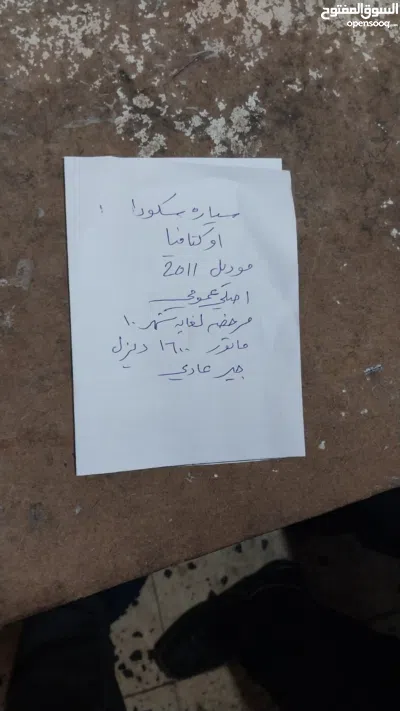 السوق المفتوح
opensooq.com
سياره سكودا
اوكتافيا
موديل 2011
اصلي عمومي
مرخصه لغايه شهر ١٠
ماتور ١٦٠٠ ديزل
جير عادي